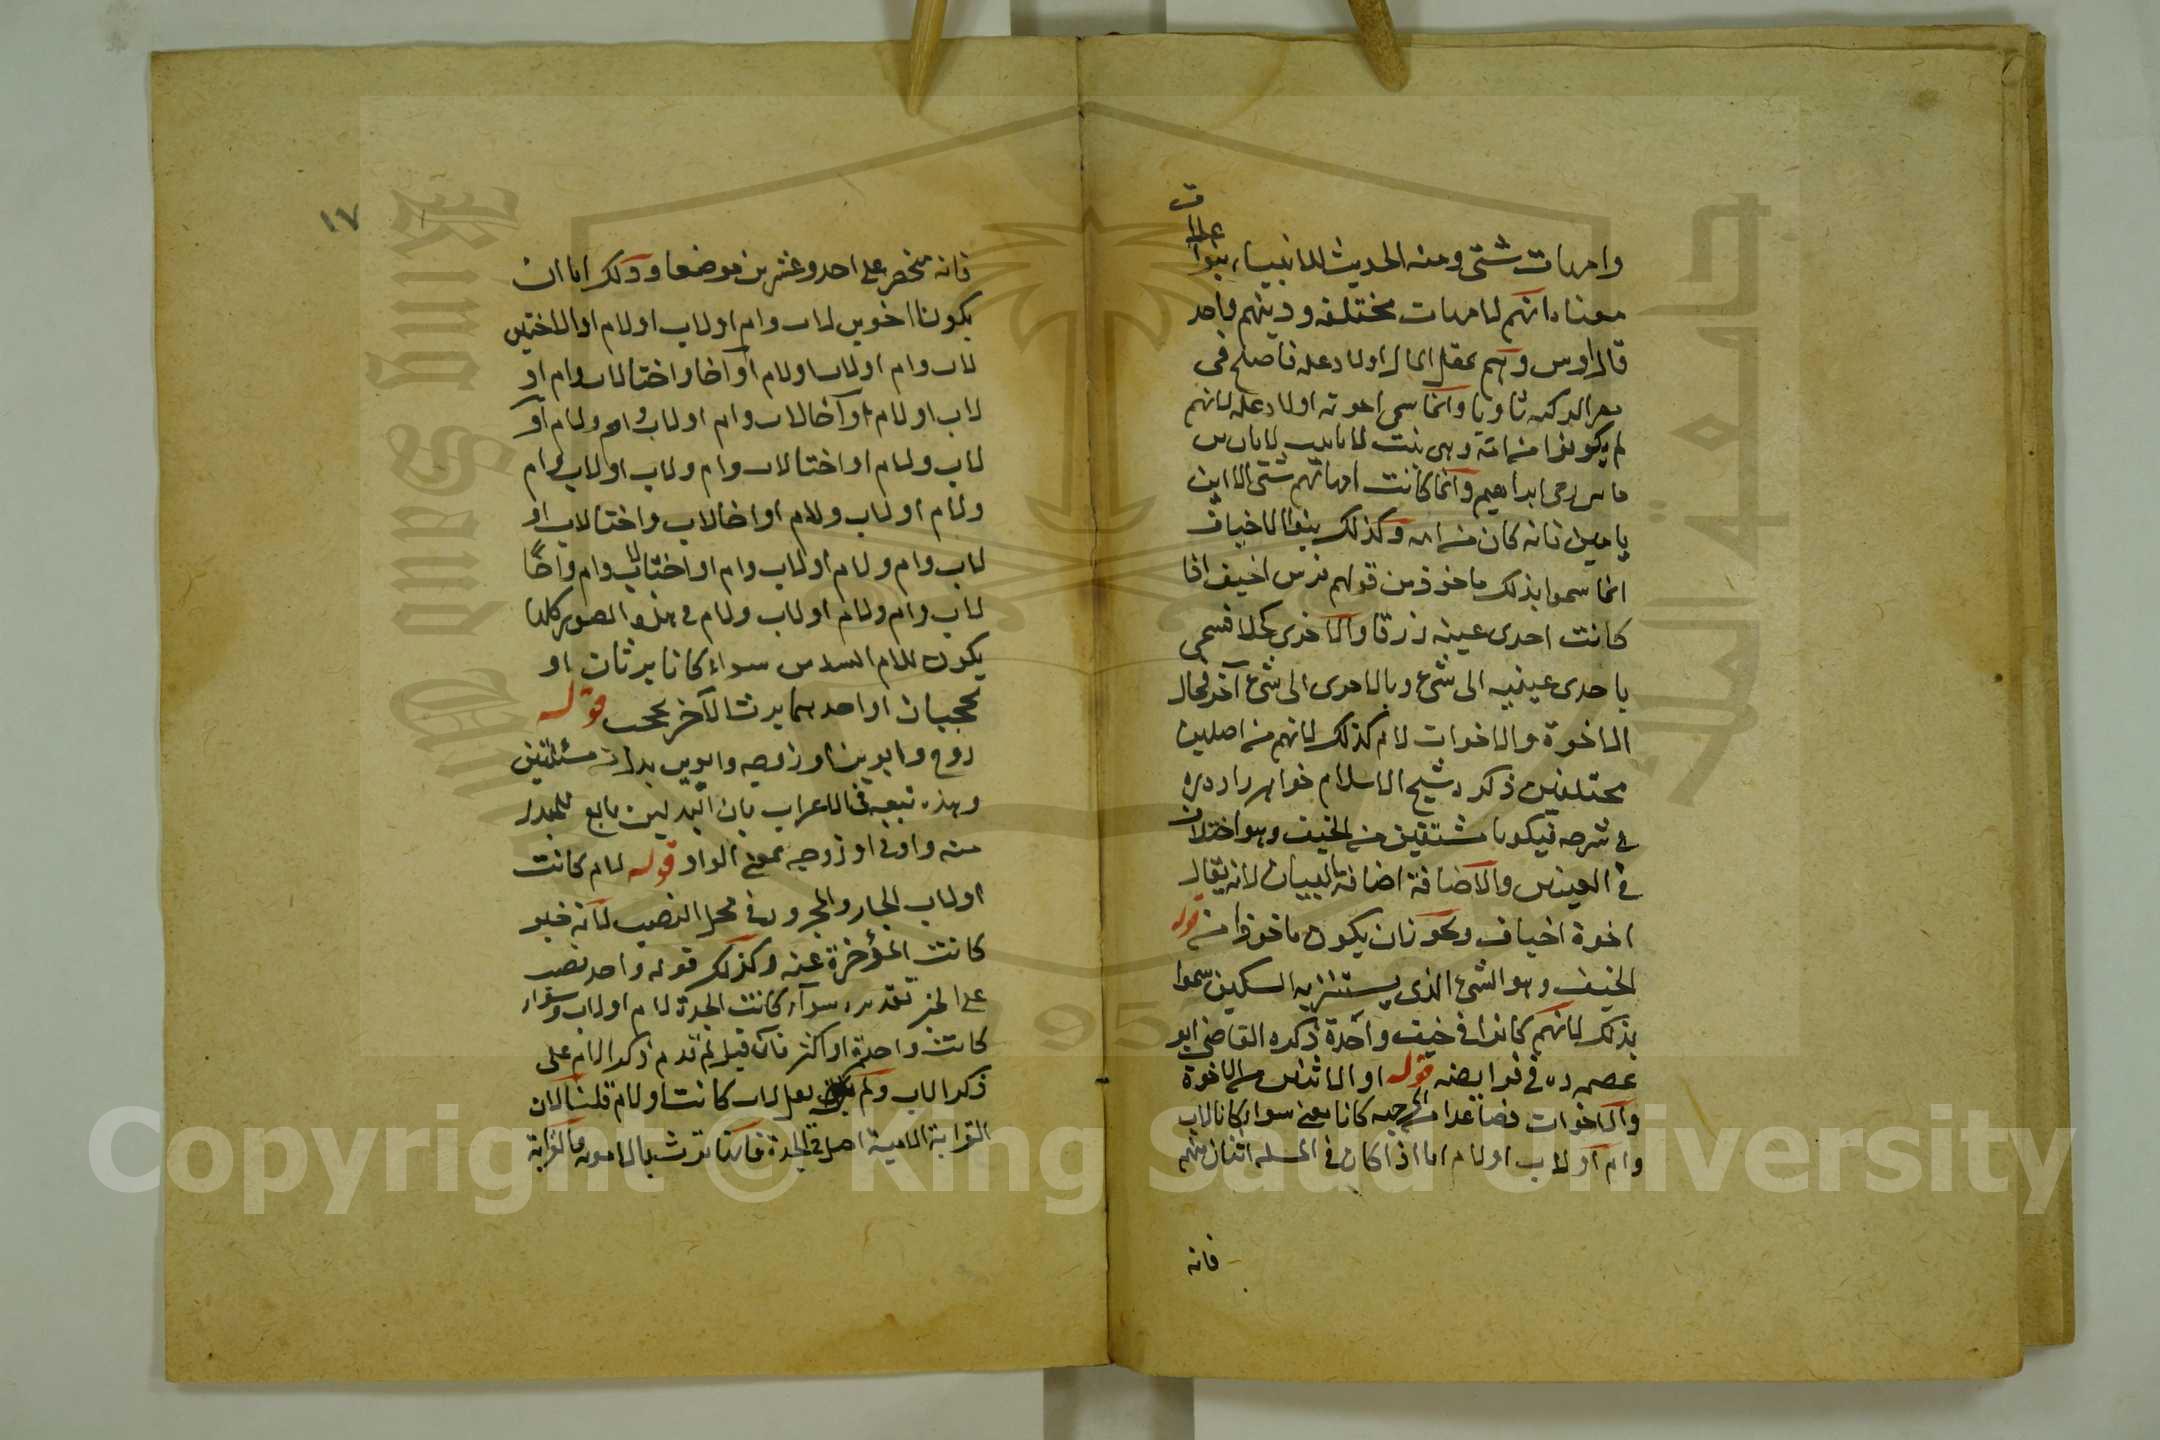 وامهات شتى ومنه الحديث الانبياء بنوا علات
معناه انهم لامهات مختلفة ودينهم واحد
قال اوس وهم لمقل المال اولاد علة
وانما سمى اخوته اولاد علة لانهم
لم يكونوا من امه وهى بنت
ابراهيم وانما كانت امهاتهم شتى الا ابن
يامين فانه كان من امه وكذلك بنوا الاخياف
انما سموا بذلك ماخوذ من قولهم فرس اخيف اذا
كانت احدى عينيه زرقا والاخرى كحلا فسمى
باحدى عينيه الى شئ وبالاخرى الى شئ آخر فحال
الاخوة والاخوات لام كذلك لانهم من اصلين
مختلفين ذكره شيخ الاسلام خواهر زاده
فى شرحه فيكون مشتقين من الخيف وهو اختلاف
فى العينين والاضافة اضافة البيان لانه يقال
اخوة اخياف ويجوز ان يكون ماخوذا من قوله
الخيف وهو الشئ الذى يستتر به السكين سموا
بذلك لانهم كانوا فى خيف واحدة ذكره القاضى ابو
عصمه فى فرايضه قوله او الاثنان من الاخوة
والاخوات فصاعدا من اى جهة كانا يعنى سواء كانا لاب
وام او لاب او لام اما اذا كان فى المسئلة اثنان منهم
فانه
١٧
فانه منحصر على احد وعشرين موضعا وذلك اما ان
يكونا اخوين لاب وام او لاب او لام او الاختين
لاب وام او لاب او لام او اخا واختا لاب وام او
لاب او لام او اخا لاب وام او لاب وام ولام او
لاب ولام او اختا لاب وام ولاب او لاب وام
ولام او لاب ولام او اخا لاب واختا لاب او
لاب وام ولام او لاب وام او اختا لاب وام واخا
لاب وام ولام او لاب ولام فى هذه الصور كلها
يكون للام السدس سواء كانا يرثان او
يحجبان او احدهما يرث الآخر يحجب قوله
زوج وابوين او زوجه وابوين بدل من مسئلتين
وهذه تبعه فى الاعراب بان البدلين تابع للمبدل
منه واو فى او زوجه بمعنى الواو قوله لام كانت
او لاب الجار والمجرور فى محل النصب لانه خبر
كانت المؤخرة عنه وكذلك قوله واحد نصب
على الخبر تقديره سواء كانت الجدة لام او لاب وسواء
كانت واحدة او اكثر فان قيل لم قدم ذكر الام على
ذكر الاب ولم يقل لاب كانت او لام قلنا لان
القرابة الامية اصل فى الجدة فانها ترث بالامومة والقرابة